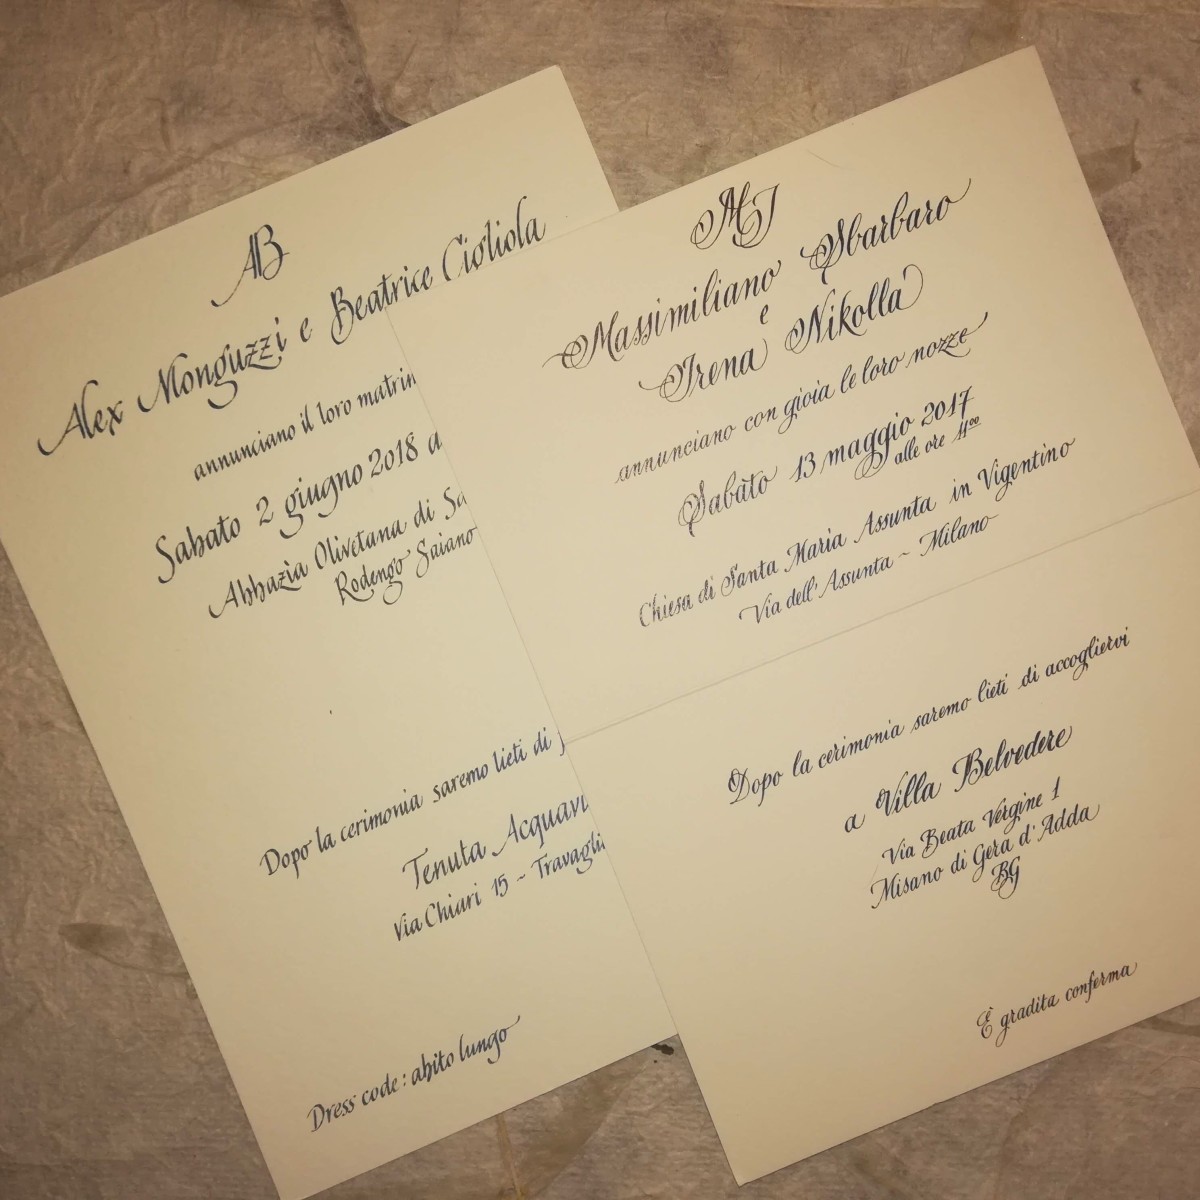 AB
Alex Monguzzi e Beatrice Cigliola
annunciano il loro matrim
Sabato 2 giugno 2018 a
Abbazia Olivetana di Sa
Rodengo Saiano
Dopo la cerimonia saremo lieti di
Tenuta Acquavi
Via Chiari 15 ~ Travagli
Dress code: abito lungo
MI
Massimiliano Sbarbaro
e
Irena Nikolla
annunciano con gioia le loro nozze
Sabato 13 maggio 2017
alle ore 1100
Chiesa di Santa Maria Assunta in Vigentino
Via dell'Assunta ~ Milano
Dopo la cerimonia saremo lieti di accogliervi
a Villa Belvedere
Via Beata Vergine 1
Misano di Gera d'Adda
BG
È gradita conferma